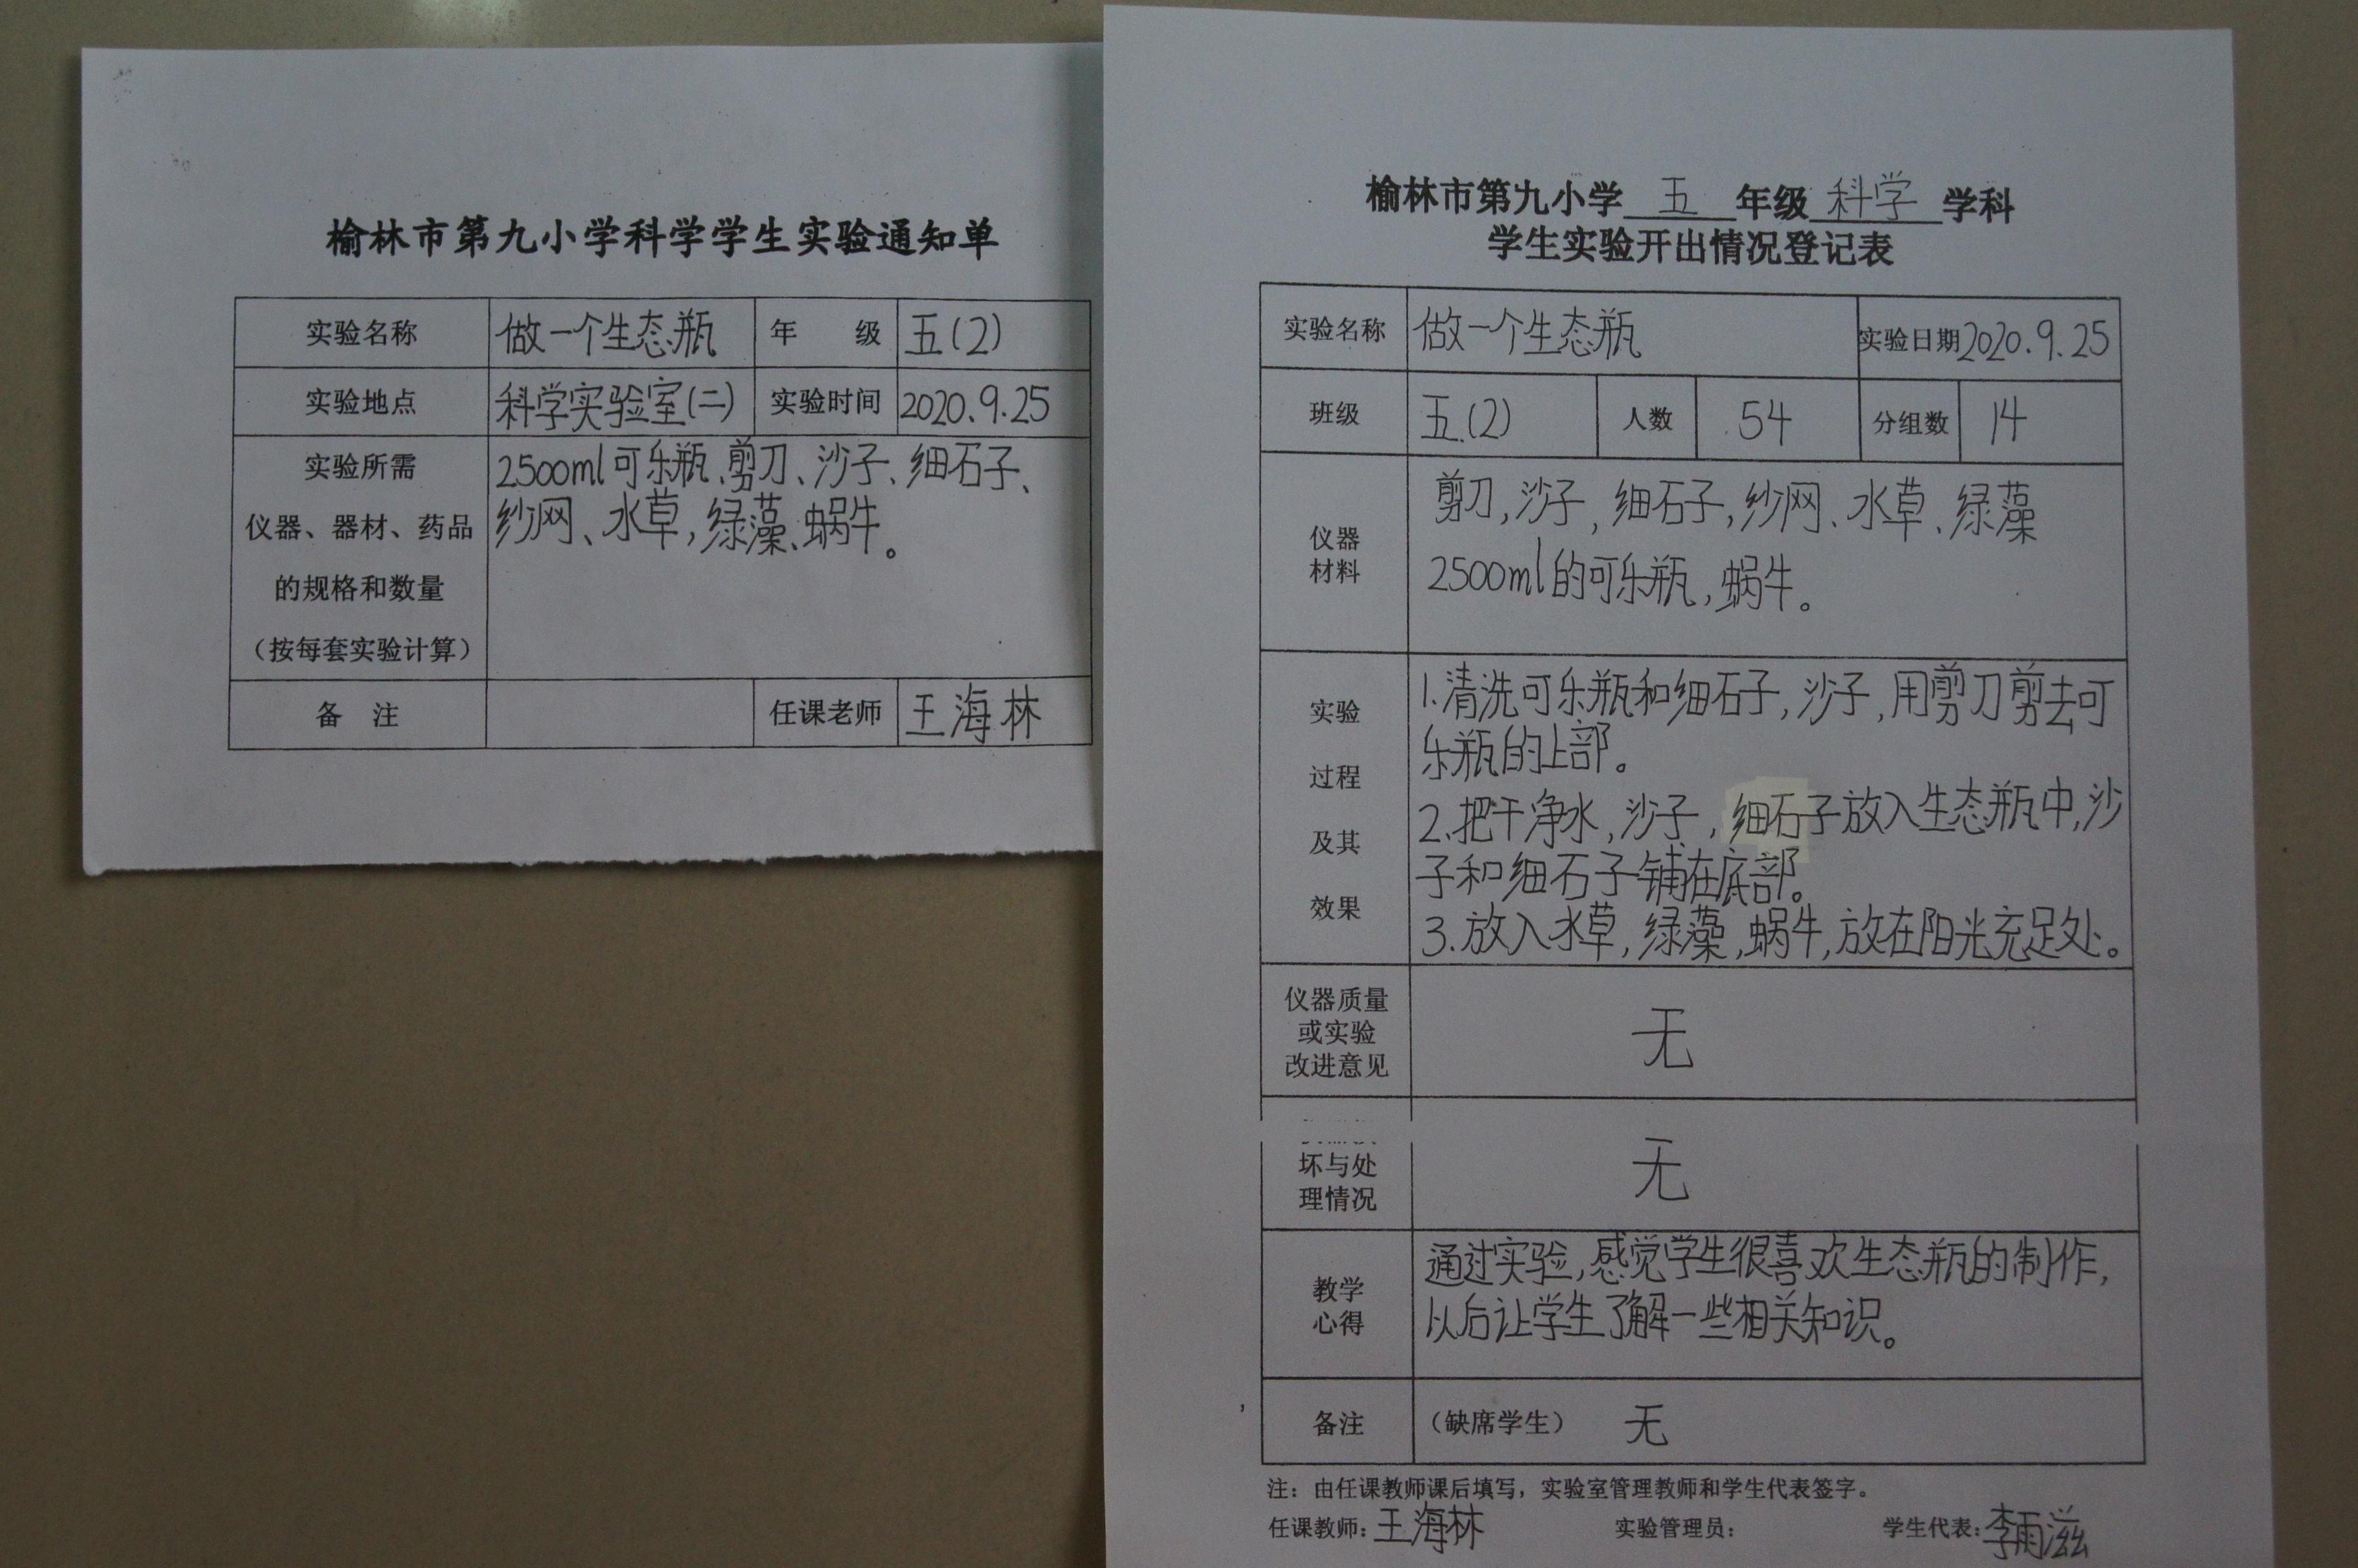 榆林市第九小学科学学生实验通知单
实验名称 做一个生态瓶 年 级 五(2)
实验地点 科学实验室(二) 实验时间 2020.9.25
实验所需
仪器、器材、药品
的规格和数量
（按每套实验计算）
2500ml可乐瓶、剪刀、沙子、细石子、
纱网、水草,绿藻、蜗牛。
备 注 任课老师 王海林
榆林市第九小学 五 年级 科学 学科
学生实验开出情况登记表
实验名称 做一个生态瓶 实验日期 2020.9.25
班级 五.(2) 人数 54 分组数 14
仪器
材料
剪刀,沙子,细石子,纱网、水草、绿藻
2500ml的可乐瓶,蜗牛。
实验
过程
及其
效果
1.清洗可乐瓶和细石子,沙子,用剪刀剪去可
乐瓶的上部。
2.把干净水,沙子,细石子放入生态瓶中,沙
子和细石子铺在底部。
3.放入水草,绿藻,蜗牛,放在阳光充足处。
仪器质量
或实验
改进意见
无
坏与处
理情况
无
教学
心得
通过实验,感觉学生很喜欢生态瓶的制作,
以后让学生了解一些相关知识。
备注 （缺席学生） 无
注：由任课教师课后填写，实验室管理教师和学生代表签字。
任课教师：王海林 实验管理员： 学生代表：李雨滋